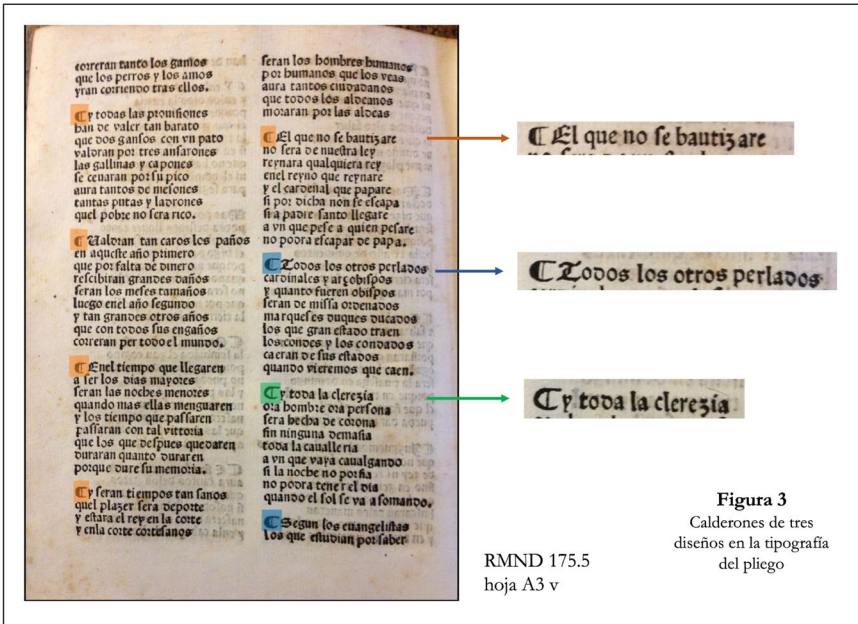 correran tanto los gansos
que los perros y los amos
yran corriendo tras ellos.
¶ y todas las prouisiones
han de valer tan barato
que dos gansos con vn pato
valdran por tres ansarones
las gallinas y capones
se cenaran por su pico
aura tantos de mesones
tantas putas y ladrones
quel pobre no sera rico.
¶ Ualdran tan caros los paños
en aqueste año primero
que por falta de dinero
rescibiran grandes daños
seran los meses tamaños
luego enel año segundo
y tan grandes otros años
que con todos sus engaños
correran per todo el mundo.
¶ Enel tiempo que llegaren
a ser los dias mayores
seran las noches menores
quando mas ellas menguaren
y los tiempo que passaren
passaran con tal vittoria
que los que despues quedaren
duraran quanto duraren
porque dure su memoria.
¶ y seran tiempos tan sanos
quel plazer sera deporte
y estara el rey en la corte
y enla corte cortesanos
seran los hombres humanos
por humanos que los veas
aura tantos ciudadanos
que todos los aldeanos
moraran por las aldeas
¶ El que no se bautizare
no sera de nuestra ley
reynara qualquiera rey
enel reyno que reynare
y el cardenal que papare
si por dicha non se escapa
si a padre santo llegare
a vn que pese a quien pesare
no podra escapar de papa.
¶ Todos los otros perlados
cardinales y arçobispos
y quanto fueren obispos
seran de missa ordenados
marqueses duques ducados
los que gran estado traen
los condes y los condados
caeran de sus estados
quando vieremos que caen.
¶ y toda la clerezia
ora hombre ora persona
sera hecha de corona
sin ninguna demasia
toda la caualleria
a vn que vaya caualgando
si la noche no porfia
no podra tener el dia
quando el sol se va asomando.
¶ Segun los euangelistas
los que estudian por saber
¶ El que no se bautizare
¶ Todos los otros perlados
¶ y toda la clerezia
RMND 175.5
hoja A3 v
Figura 3
Calderones de tres
diseños en la tipografía
del pliego